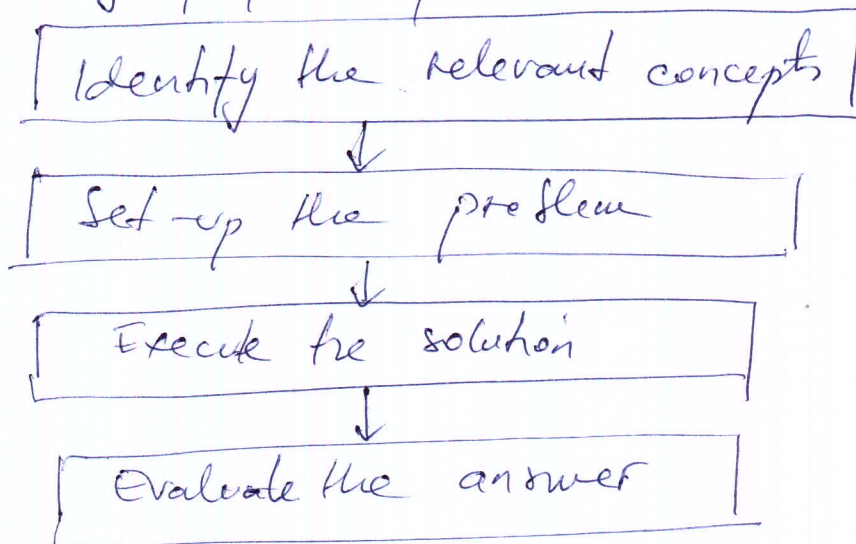 Identify the relevant concepts
Set-up the problem
Execute the solution
Evaluate the answer